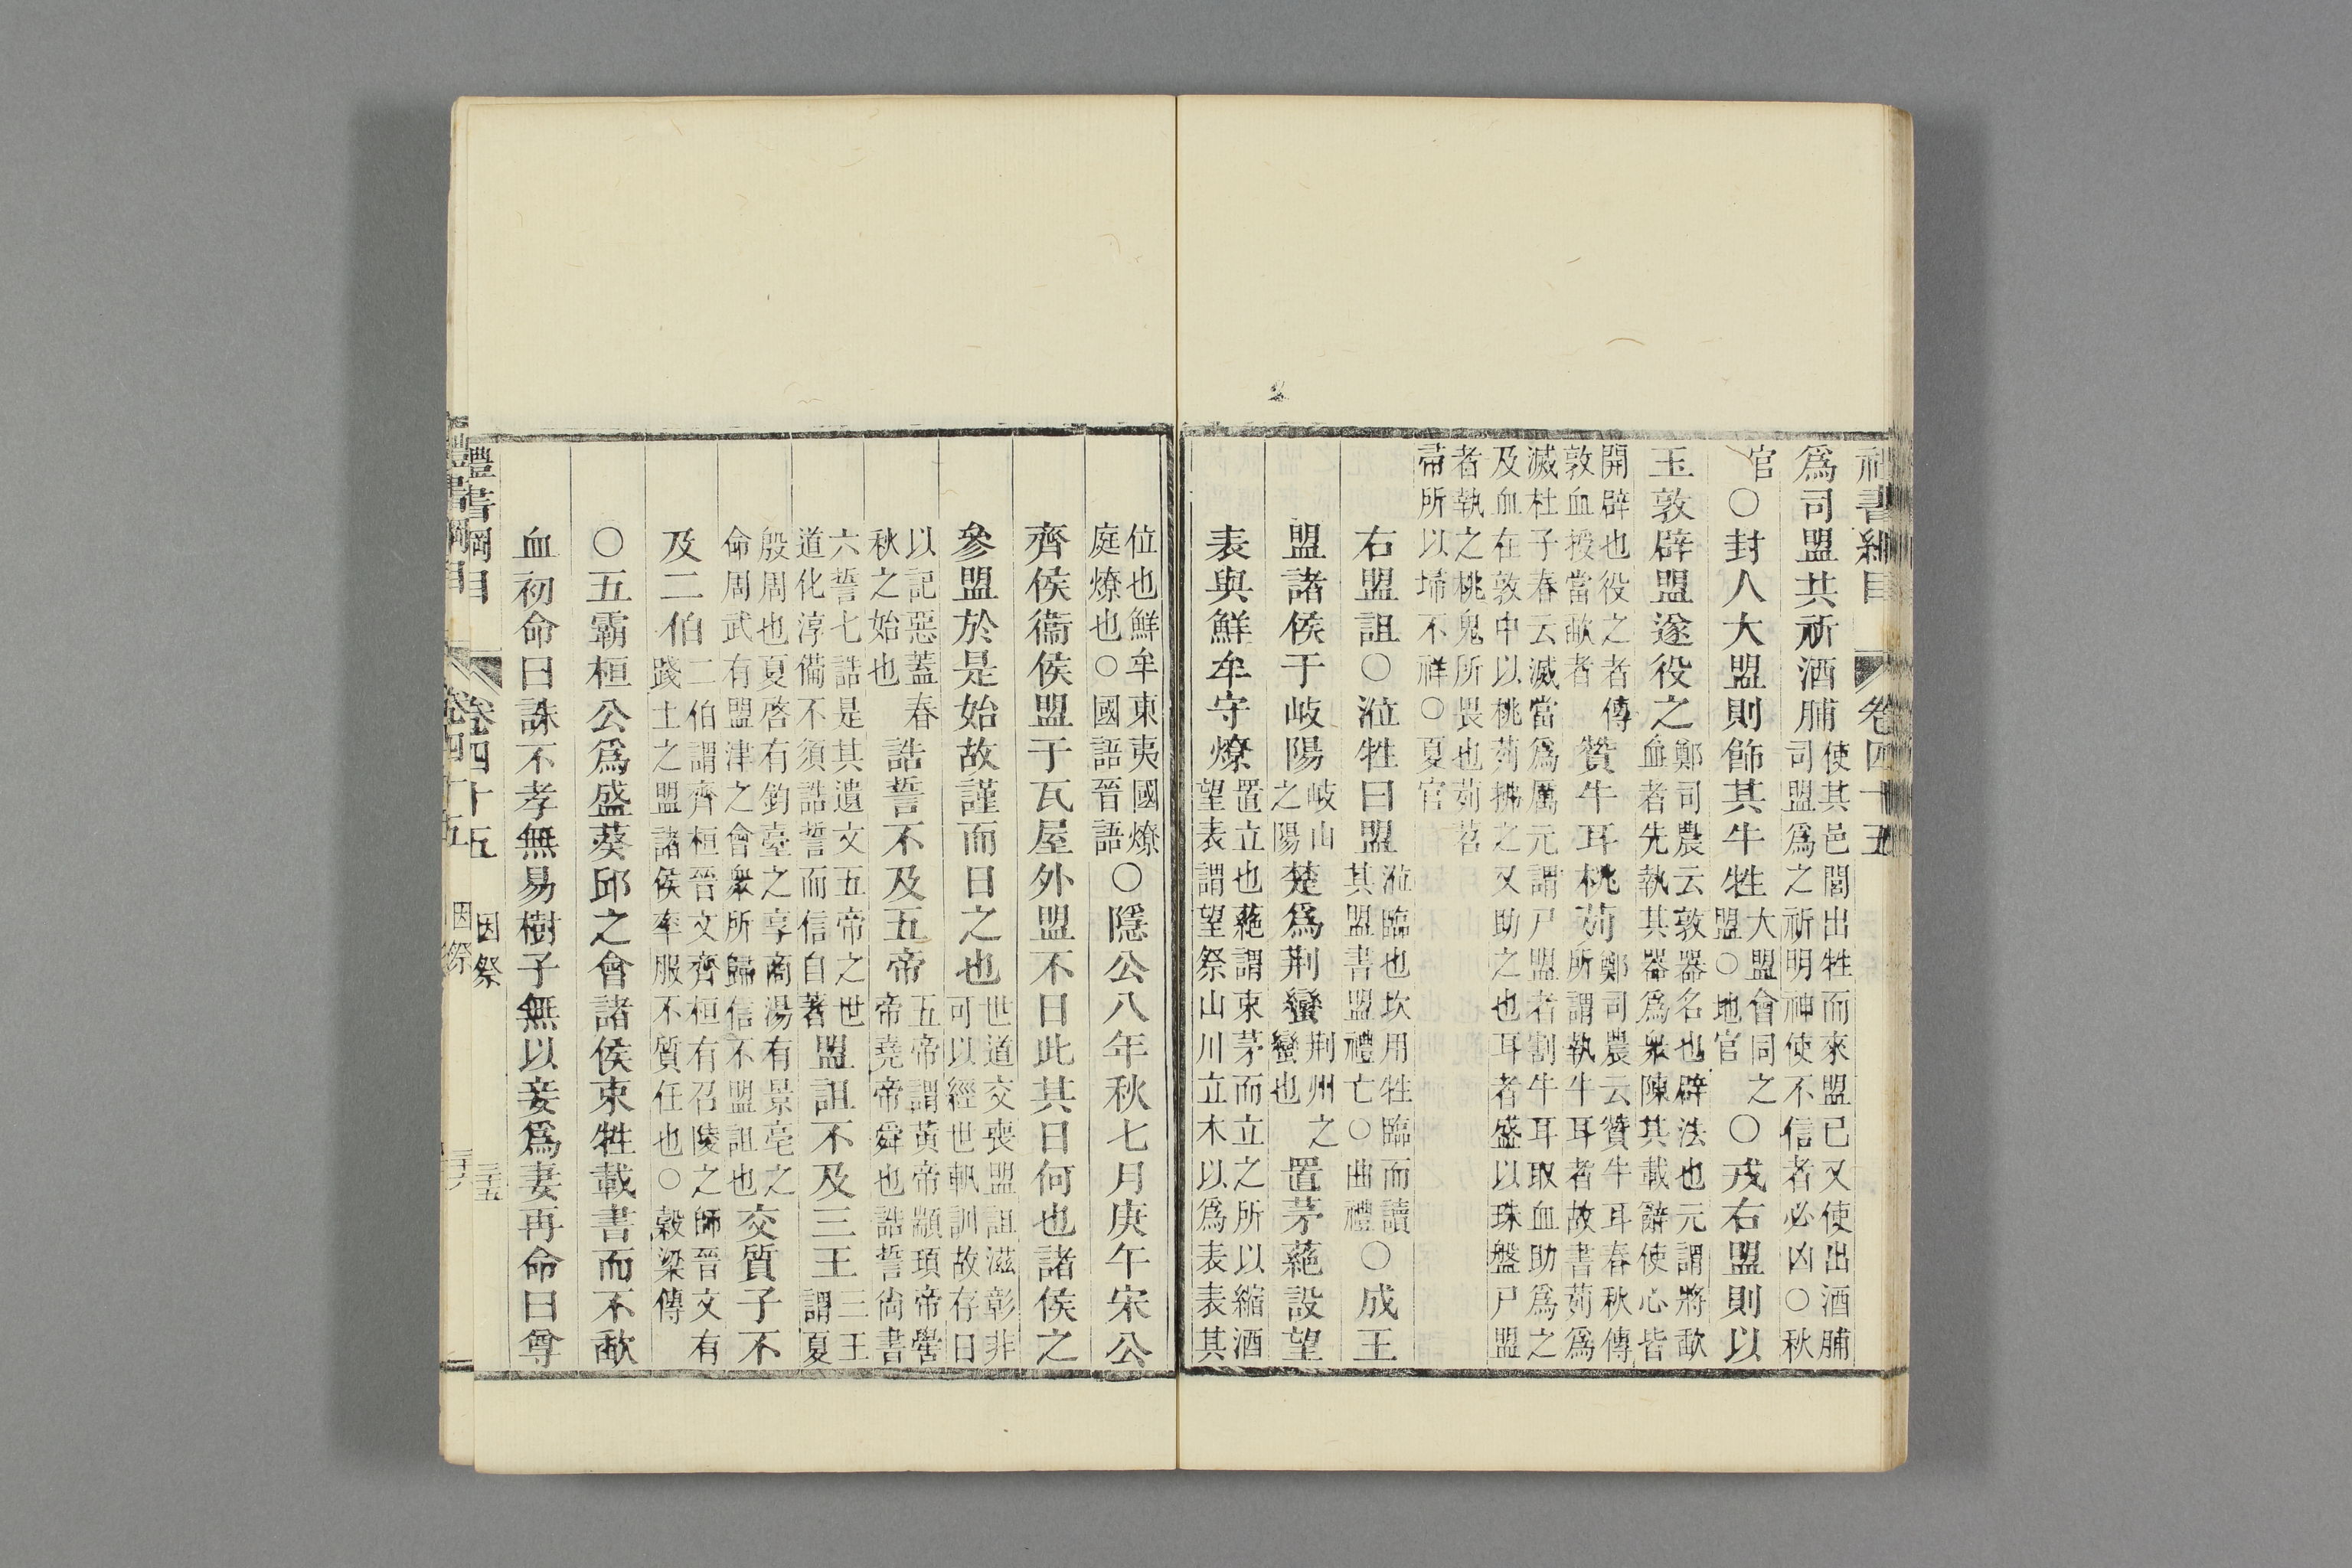 禮書綱目　卷四十五
爲司盟共祈酒脯使其邑閭出牲而來盟已又使出酒脯司盟爲之祈明神使不信者必凶○秋
官○封人大盟則飾其牛牲大盟會同之盟○地官○戎右盟則以
玉敦辟盟遂役之鄭司農云敦器名也辟法也元謂將歃血者先執其器爲衆陳其載辭使心皆
開辟也役之者傳敦血授當歃者贊牛耳桃茢鄭司農云贊牛耳春秋傳所謂執牛耳者故書茢爲
滅杜子春云滅當爲厲元謂尸盟者割牛耳取血助爲之及血在敦中以桃茢拂之又助之也耳者盛以珠盤尸盟
者執之桃鬼所畏也茢苕帚所以埽不祥○夏官
右盟詛○涖牲曰盟涖臨也坎用牲臨而讀其盟書盟禮亡○曲禮○成王
盟諸侯于岐陽岐山之陽楚爲荆蠻荆州之蠻也置茅蕝設望
表與鮮牟守燎置立也蕝謂束茅而立之所以縮酒望表謂望祭山川立木以爲表表其
位也鮮牟東夷國燎庭燎也○國語晉語○隱公八年秋七月庚午宋公
齊侯衞侯盟于瓦屋外盟不日此其日何也諸侯之
參盟於是始故謹而日之也世道交喪盟詛滋彰非可以經世軌訓故存日
以記惡蓋春秋之始也誥誓不及五帝五帝謂黃帝顓頊帝嚳帝堯帝舜也誥誓尚書
六誓七誥是其遺文五帝之世道化淳備不須誥誓而信自著盟詛不及三王三王謂夏
殷周也夏啓有鈞臺之享商湯有景亳之命周武有盟津之會衆所歸信不盟詛也交質子不
及二伯二伯謂齊桓晉文齊桓有召陵之師晉文有踐土之盟諸侯率服不質任也○穀梁傳
○五霸桓公爲盛葵邱之會諸侯束牲載書而不歃
血初命曰誅不孝無易樹子無以妾爲妻再命曰尊
禮書綱目　卷四十五　因祭　三五
禮書綱目　卷四十五　因祭